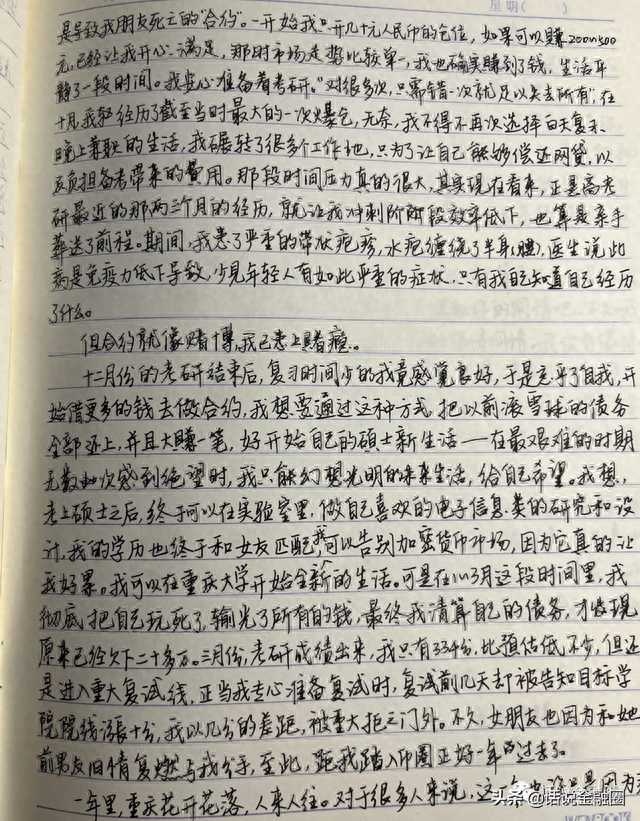 星期( )
是导致我朋友死亡的"合约"。一开始我只开几十元人民币的仓位,如果可以赚200、300
元,已经让我开心、满足,那时市场走势比较单一,我也确实赚到了钱,生活平
静了一段时间。我安心准备着考研。"对很多次,只需错一次就足以失去所有",在
十月,我轻经历了截至当时最大的一次爆仓,无奈,我不得不再次选择白天复习、
晚上兼职的生活,我辗转了很多个工作地,只为了让自己能够偿还网贷,以
及负担备考带来的费用。那段时间压力真的很大,其实现在看来,正是离考
研最近的那两三个月的经历,就让我冲刺阶段效率低下,也算是亲手
葬送了前程。期间,我患了严重的带状疱疹,水疱缠绕了半身(腰),医生说此
病是免疫力低下导致,少见年轻人有如此严重的症状,只有我自己知道自己经历
了什么。
但合约就像赌博,我已患上赌瘾。
十二月份的考研结束后,复习时间少的我竟感觉良好,于是忘乎了自我,开
始借更多的钱去做合约,我想要通过这种方式,把以前滚雪球的债务
全部还上,并且大赚一笔,好开始自己的硕士新生活——在最艰难的时期
无数次感到绝望时,我只能幻想光明的未来生活,给自己希望。我想,
考上硕士之后,终于可以在实验室里,做自己喜欢的电子信息类的研究和设
计,我的学历也终于和女友匹配,我可以告别加密货币市场,因为它真的让
我好累。我可以在重庆大学开始全新的生活。可是在1、2、3月这段时间里,我
彻底把自己玩死了,输光了所有的钱,最终我清算自己的债务,才发现
原来已经欠下二十多万。三月份,考研成绩出来,我只有334分,比预估低不少,但还
是进入重大复试线,正当我专心准备复试时,复试前几天却被告知目标学
院院线涨十分,我以几分的差距,被重大拒之门外。不久,女朋友也因为和她
前男友旧情复燃与我分手,至此,距我踏入币圈正好一年的过去了。
一年里,重庆花开花落,人来人往。对于很多人来说,这一
头条 @话说金融圈